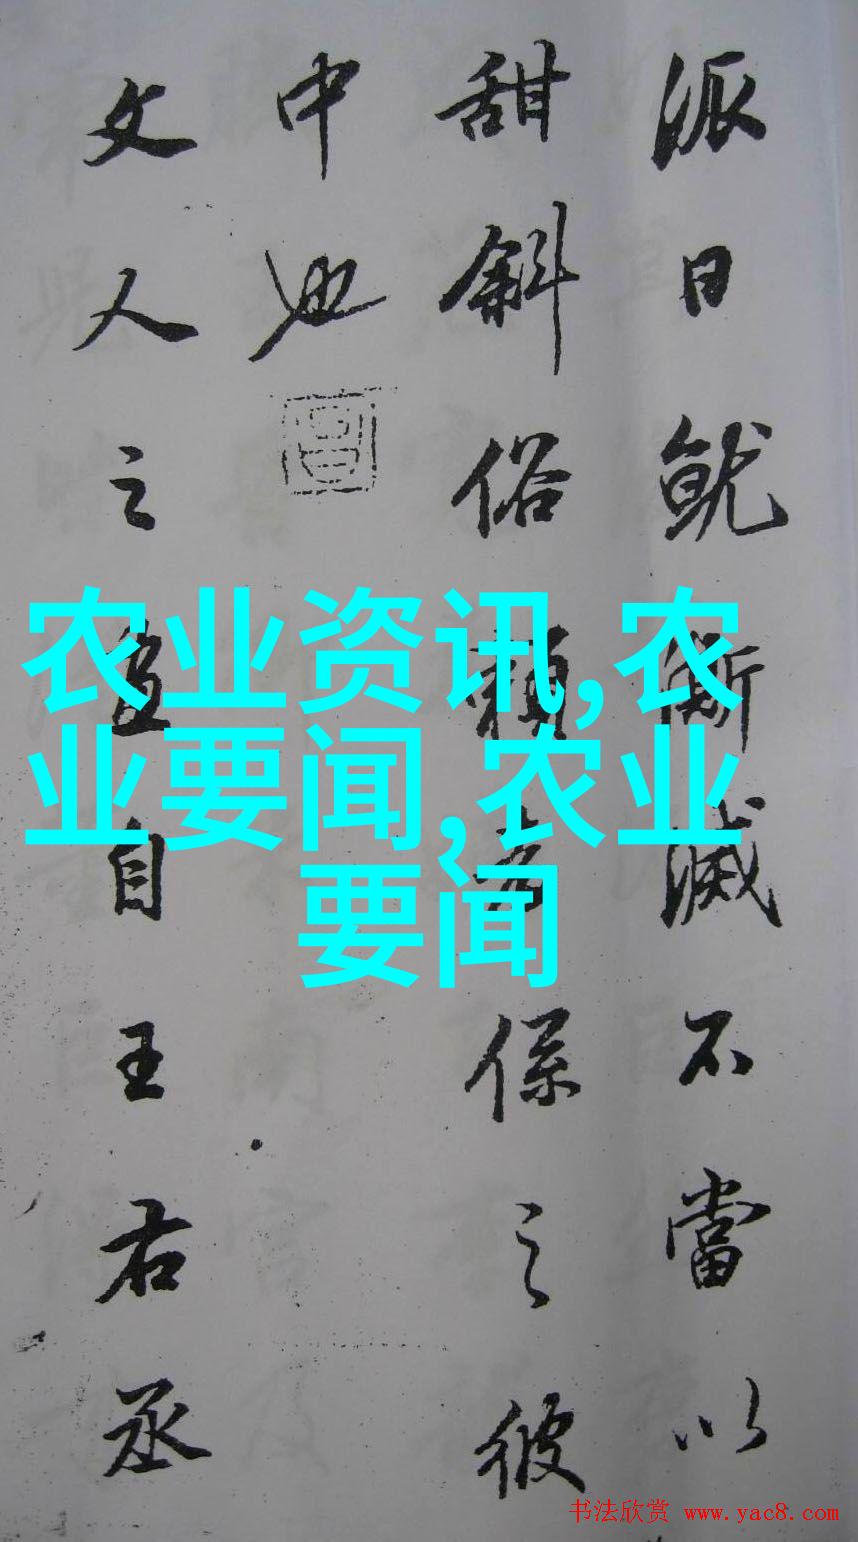 派日就澌滅不當以
甜斜俗賴者係之彼
中也
文人之畫自王右丞
农业资讯,农
业要闻,农业
要闻
书法欣赏 www.yac8.com